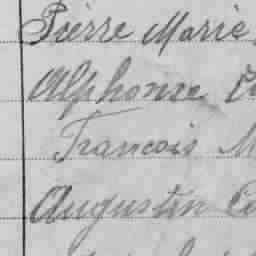 Pierre Marie
Alphonse
Francois
Augustin